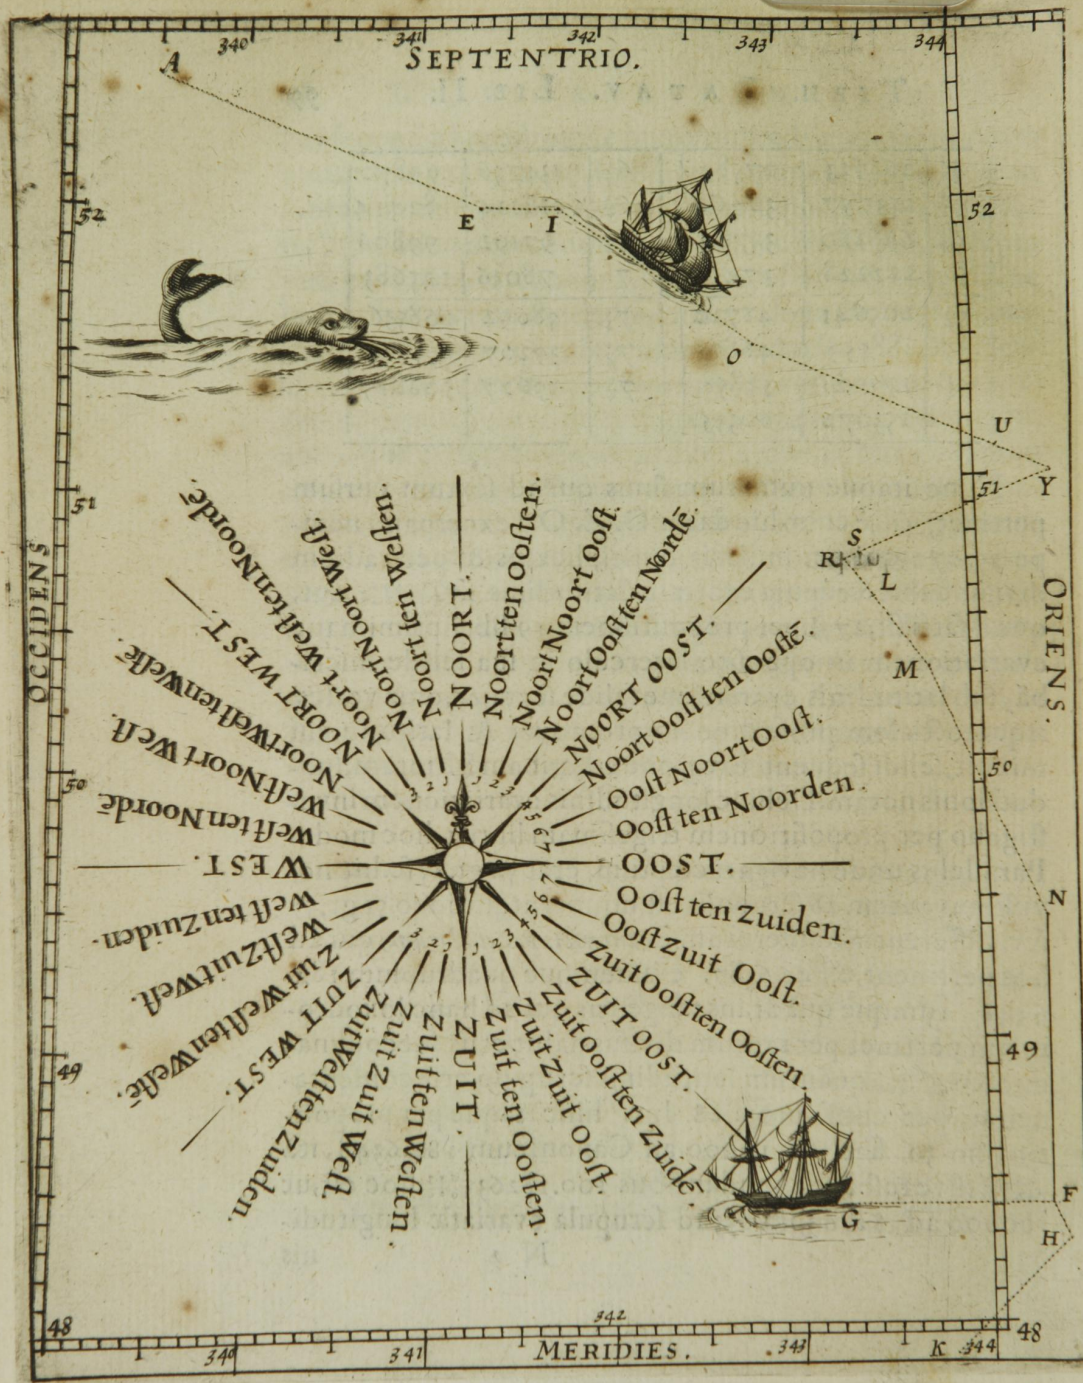 340 341 342 343 344
SEPTENTRIO.
A
52 52
E I
O
U
51 51
Y
S
R
L
M
OCCIDENS
ORIENS.
50 50
N
NOORT.
Noort ten Ooſten.
Noort Noort Ooſt.
Noort Ooſt ten Nordē.
NOORT OOST.
Noort Ooſt ten Ooſtē.
Ooſt Noort Ooſt.
Ooſt ten Noorden.
OOST.
Ooſt ten Zuiden.
Ooſt Zuit Ooſt.
Zuit Ooſt ten Ooſten.
ZUIT OOST.
Zuit Ooſt ten Zuidē.
Zuit Zuit Ooſt.
Zuit ten Ooſten.
ZUIT.
Zuit ten Weſten.
Zuit Zuit Weſt.
Zuit Weſt ten Zuiden.
ZUIT WEST.
Zuit Weſt ten Weſtē.
Weſt Zuit Weſt.
Weſt ten Zuiden.
WEST.
Weſt ten Noordē.
Weſt Noort Weſt.
Noort Weſt ten Weſtē.
NOORT WEST.
Noort Weſt ten Noordē.
Noort Noort Weſt.
Noort ten Weſten.
1 2 3 4 5 6 7
7 6 5 4 3 2 1
1 2 3
3 2 1
49 49
G
F
H
48 48
342
340 341 MERIDIES. 343 K 344